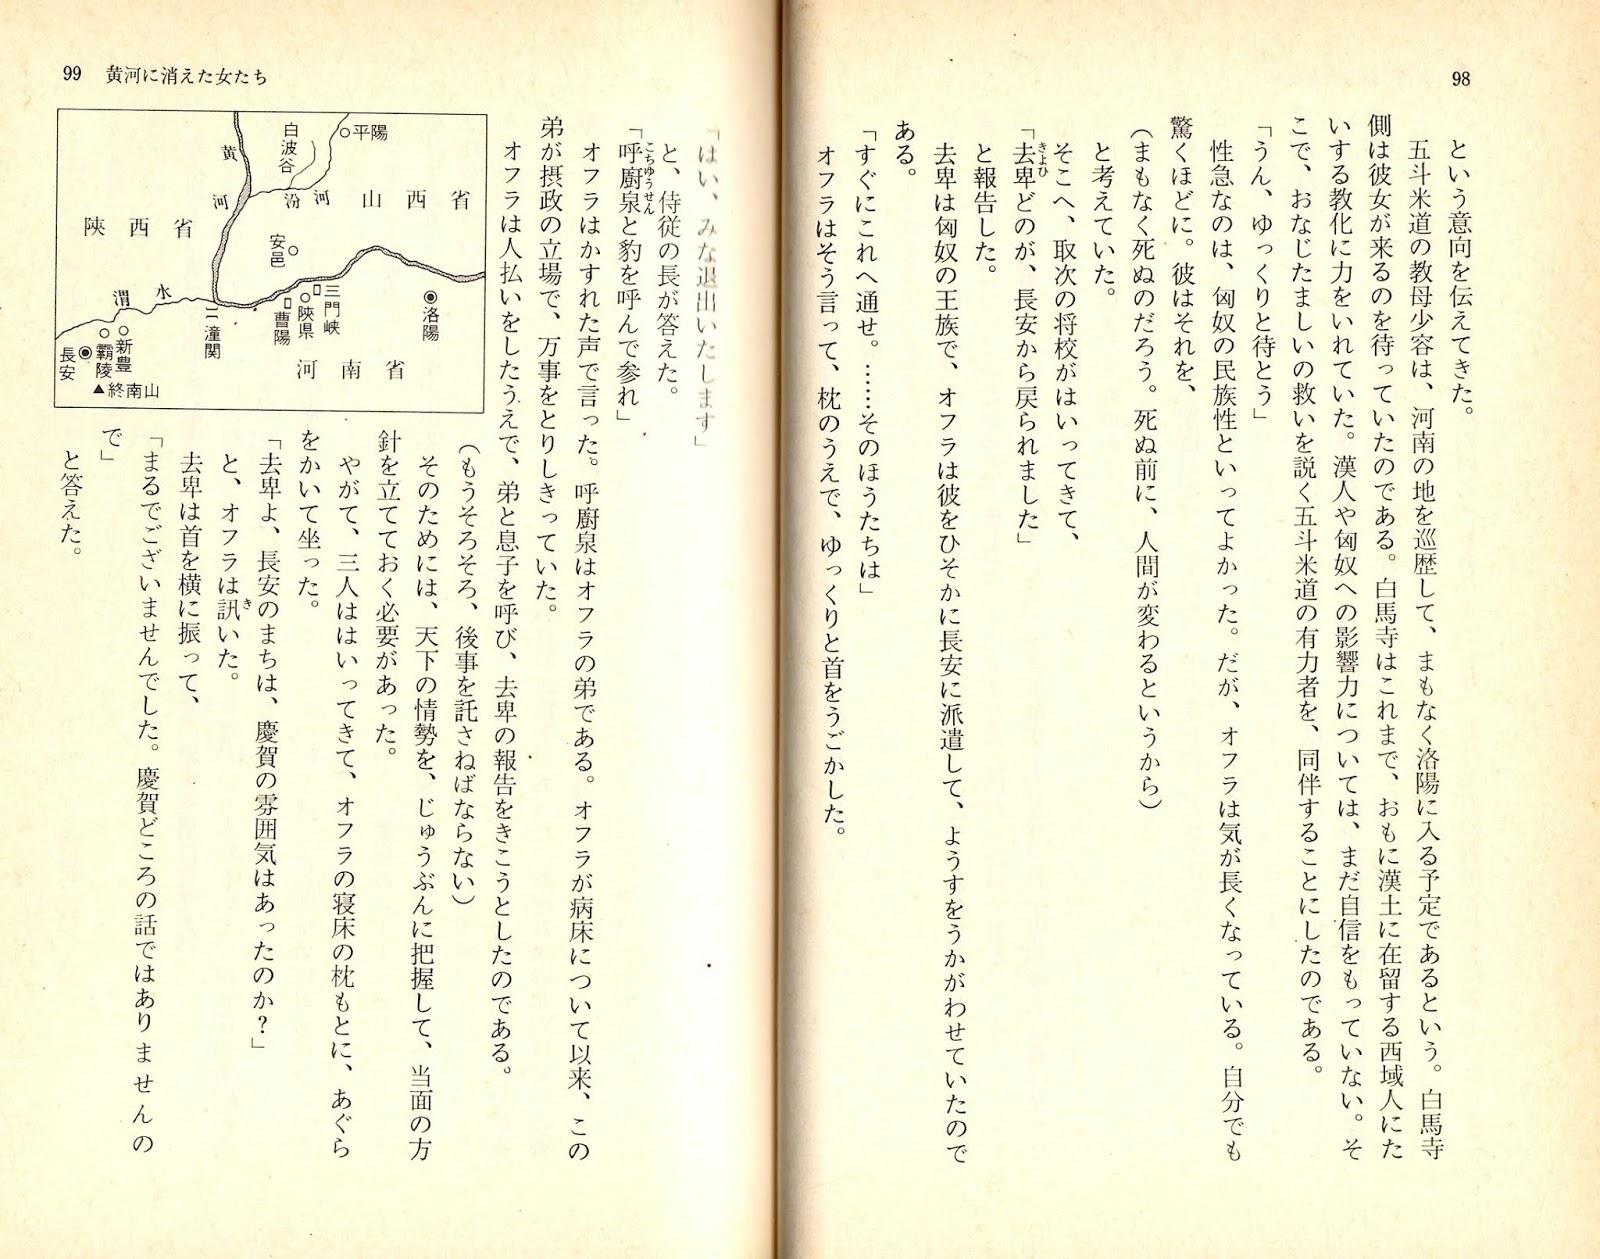 98
という意向を伝えてきた。
五斗米道の教母少容は、河南の地を巡歴して、まもなく洛陽に入る予定であるという。白馬寺
側は彼女が来るのを待っていたのである。白馬寺はこれまで、おもに漢土に在留する西域人にた
いする教化に力をいれていた。漢人や匈奴への影響力については、まだ自信をもっていない。そ
こで、おなじたましいの救いを説く五斗米道の有力者を、同伴することにしたのである。
「うん、ゆっくりと待とう」
性急なのは、匈奴の民族性といってよかった。だが、オフラは気が長くなっている。自分でも
驚くほどに。彼はそれを、
(まもなく死ぬのだろう。死ぬ前に、人間が変わるというから)
と考えていた。
そこへ、取次の将校がはいってきて、
「去卑どのが、長安から戻られました」
きよひ
と報告した。
去卑は匈奴の王族で、オフラは彼をひそかに長安に派遣して、ようすをうかがわせていたので
ある。
「すぐにこれへ通せ。……そのほうたちは」
オフラはそう言って、枕のうえで、ゆっくりと首をうごかした。
99 黄河に消えた女たち
「はい、みな退出いたします」
と、侍従の長が答えた。
「呼廚泉と豹を呼んで参れ」
こちゆうせん
オフラはかすれた声で言った。呼廚泉はオフラの弟である。オフラが病床について以来、この
弟が摂政の立場で、万事をとりしきっていた。
オフラは人払いをしたうえで、弟と息子を呼び、去卑の報告をきこうとしたのである。
(もうそろそろ、後事を託さねばならない)
そのためには、天下の情勢を、じゅうぶんに把握して、当面の方
針を立てておく必要があった。
やがて、三人ははいってきて、オフラの寝床の枕もとに、あぐら
をかいて坐った。
「去卑よ、長安のまちは、慶賀の雰囲気はあったのか？」
と、オフラは訊いた。
き
去卑は首を横に振って、
「まるでございませんでした。慶賀どころの話ではありませんの
で」
と答えた。
平陽
白波谷
黄河
汾河
山西省
陝西省
安邑
渭水
三門峡
陝県
曹陽
洛陽
潼関
河南省
新豊
覇陵
長安
終南山